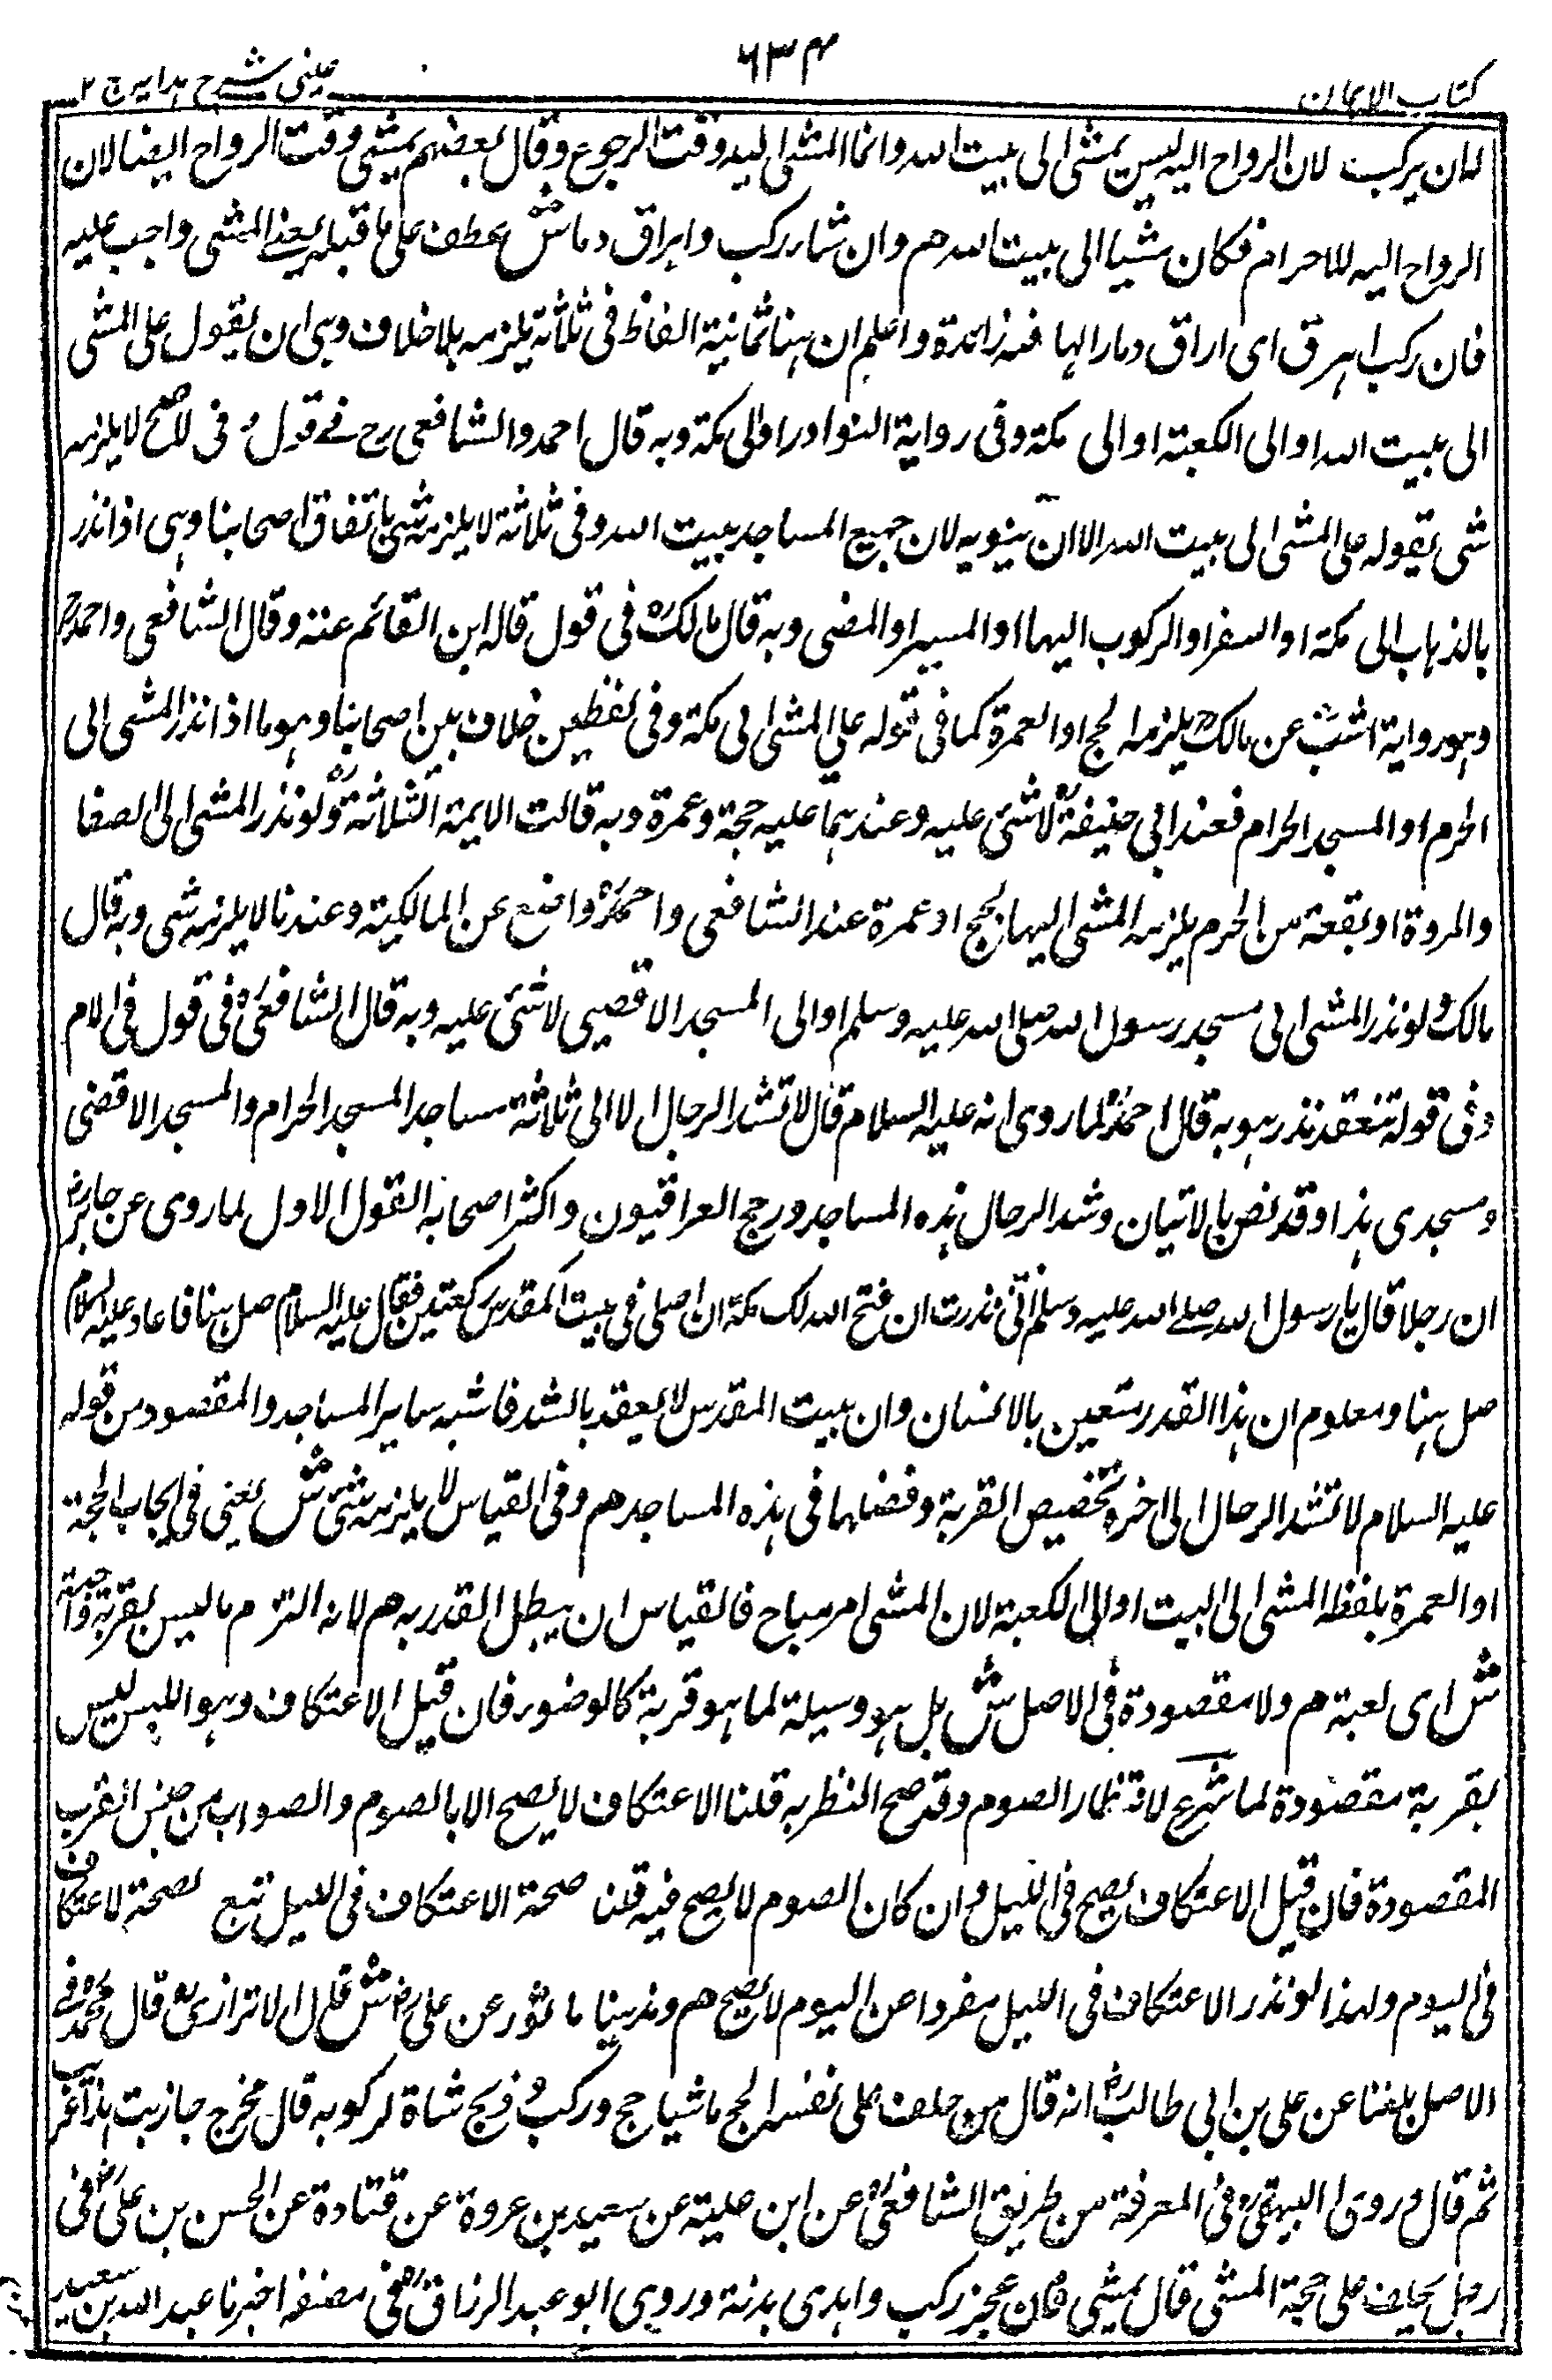 كتاب الايمان ٦٣٤ عينى شرح هدايه ج ٢
له ان يركب لان الرواح اليه ليس بمشى الى بيت الله وانما المشى اليه وقت الرجوع وقال بعضهم يمشى وقت الرواح ايضا لان
الرواح اليه للاحرام فكان مشيا الى بيت الله هم وان شاء ركب واهراق دما ش عطف على ما قبله يعنى المشى واجب عليه
فان ركب اهرق اى اراق دما والهاء فيه زائدة واعلم ان هنا ثمانية الفاظ فى ثلاثة يلزمه بلا خلاف وهى ان يقول على المشى
الى بيت الله او الى الكعبة او الى مكة وفى رواية النوادر او الى مكة وبه قال احمد والشافعى رح فى قول وفى الاصح لا يلزمه
شى بقوله على المشى الى بيت الله الا ان ينويه لان جميع المساجد بيت الله وفى ثلاثة لا يلزمه شى باتفاق اصحابنا وهى اذا نذر
بالذهاب الى مكة او السفر او الركوب اليها او المسير او المضى وبه قال مالك فى قول قاله ابن القاسم عنه وقال الشافعى واحمد
وهو رواية اشهب عن مالك يلزمه الحج او العمرة كما فى قوله على المشى الى مكة وفى لفظين خلاف بين اصحابنا وهو ما اذا نذر المشى الى
الحرم او المسجد الحرام فعند ابى حنيفة لا شئ عليه وعندهما عليه حجة وعمرة وبه قالت الايمة الثلاثة ولو نذر المشى الى الصفا
والمروة او بقعة من الحرم يلزمه المشى اليها بحج او عمرة عند الشافعى واحمد واصبغ عن المالكية وعندنا لا يلزمه شى وبه قال
مالك ولو نذر المشى الى مسجد رسول الله صلى الله عليه وسلم او الى المسجد الاقصى لا شئ عليه وبه قال الشافعى فى قول فى الام
وفى قوله تنعقد نذره وبه قال احمد لما روى انه عليه السلام قال لا تشد الرحال الا الى ثلاثة مساجد المسجد الحرام والمسجد الاقصى
ومسجدى هذا وقد نص بالاتيان وشد الرحال هذه المساجد ورجح العراقيون واكثر اصحابه القول الاول لما روى عن جابر
ان رجلا قال يا رسول الله صلى الله عليه وسلم انى نذرت ان فتح الله لك مكة ان اصلى فى بيت المقدس ركعتين فقال عليه السلام صل هنا فاعاد عليه السلام
صل هنا ومعلوم ان هذا القدر متعين بالانسان وان بيت المقدس لا يعقد بالشد فاشبه ساير المساجد والمقصود من قوله
عليه السلام لا تشد الرحال الى اخره تخصيص القربة وفضلها فى هذه المساجد هم وفى القياس لا يلزمه شئ ش يعنى فى ايجاب الحجة
او العمرة بلفظه المشى الى البيت او الى الكعبة لان المشى امر مباح فالقياس ان يبطل القدر به هم لانه التزم ما ليس بقربة واجبة
ش اى لعبة هم ولا مقصودة فى الاصل ش بل هو وسيلة لما هو قربة كالوضوء فان قيل الاعتكاف وهو اللبس ليس
بقربة مقصودة لما شرع لانتظار الصوم وقد صح النظر به قلنا الاعتكاف لا يصح الا بالصوم والصواب من جنس القرب
المقصودة فان قيل الاعتكاف يصح فى الليل وان كان الصوم لا يصح فيه قلنا صحة الاعتكاف فى الليل تبع لصحة الاعتكاف
فى اليوم ولهذا لو نذر الاعتكاف فى الليل مفردا عن اليوم لا يصح هم ومذهبنا ماثور عن على ش قال الاترازى قال محمد فى
الاصل بلغنا عن على بن ابى طالب انه قال من حلف على نفسه الحج ماشيا حج وركب وذبح شاة لركوبه قال مخرج حاديث هذا غريب
ثم قال وروى البيهقى فى المعرفة من طريق الشافعى عن ابن علية عن سعيد بن عروة عن قتادة عن الحسن بن على فى
رجل يحلف على حجة المشى قال يمشى فان عجز ركب واهدى بدنة وروى ابو عبد الرزاق فى مصنفه اخبرنا عبد الله بن سعيد